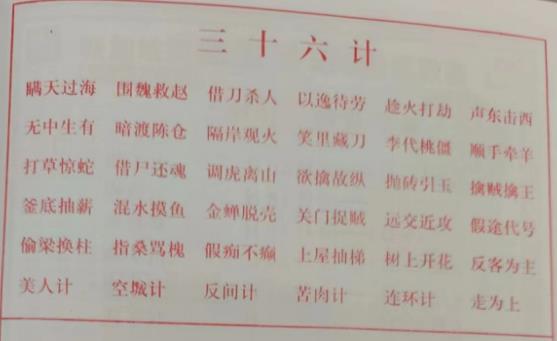 三十六计
瞒天过海 围魏救赵 借刀杀人 以逸待劳 趁火打劫 声东击西
无中生有 暗渡陈仓 隔岸观火 笑里藏刀 李代桃僵 顺手牵羊
打草惊蛇 借尸还魂 调虎离山 欲擒故纵 抛砖引玉 擒贼擒王
釜底抽薪 混水摸鱼 金蝉脱壳 关门捉贼 远交近攻 假途代号
偷梁换柱 指桑骂槐 假痴不癫 上屋抽梯 树上开花 反客为主
美人计 空城计 反间计 苦肉计 连环计 走为上